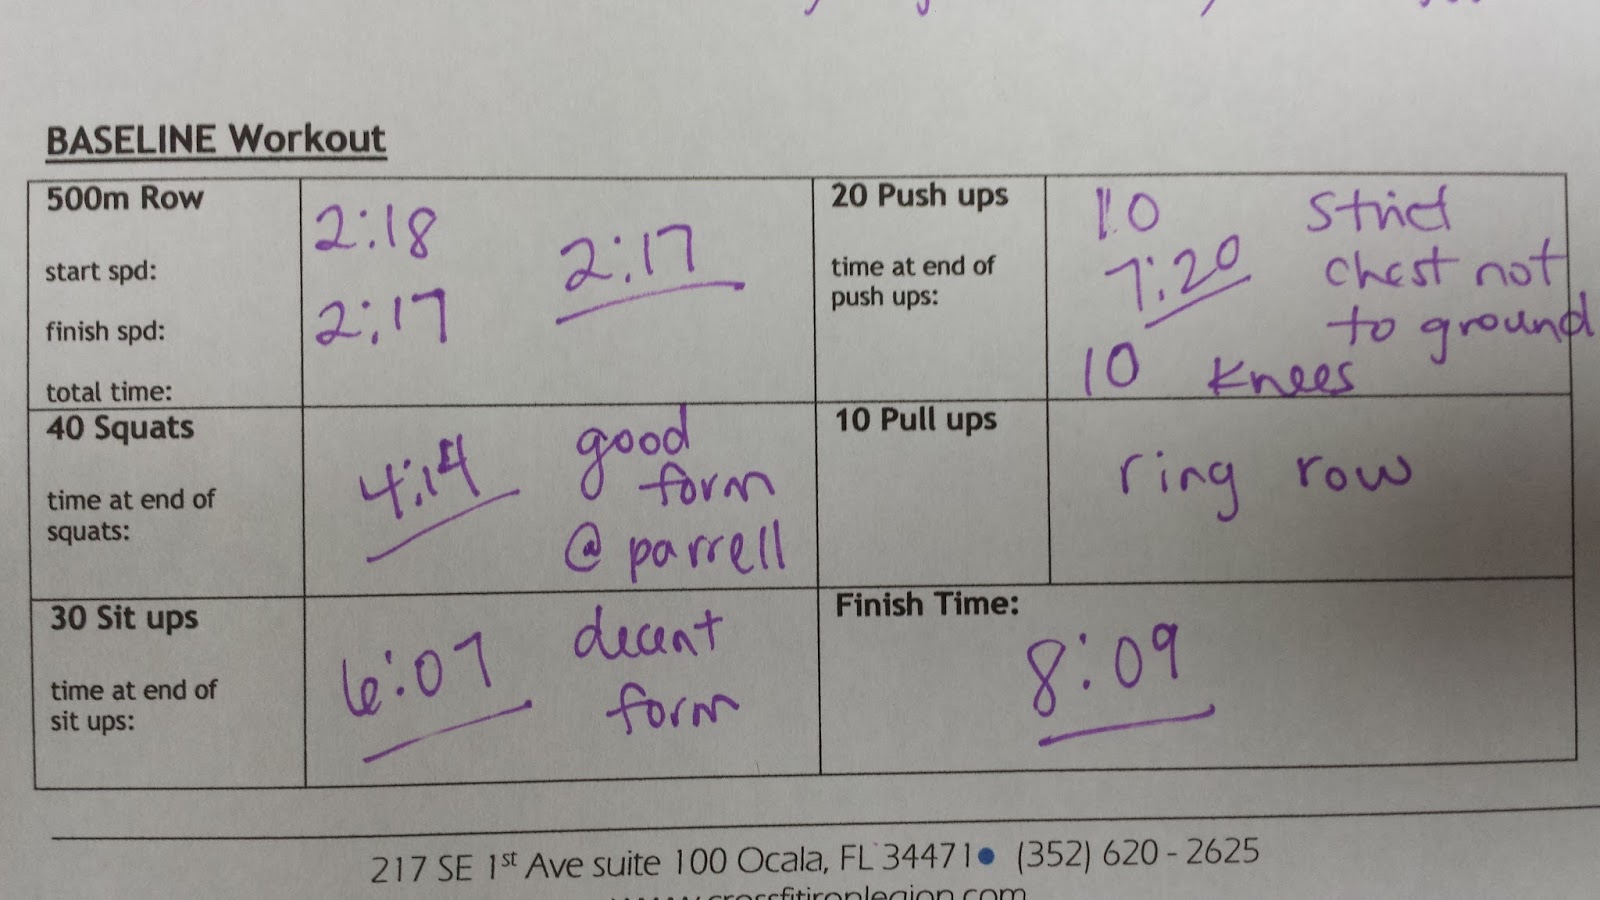 BASELINE Workout
500m Row
2:18
start spd:
2:17
finish spd:
2:17
total time:
20 Push ups
10 Strict
time at end of
push ups:
7:20 chest not
to ground
10 knees
40 Squats
time at end of
squats:
4:14 good
form
@ parrell
10 Pull ups
ring row
30 Sit ups
time at end of
sit ups:
6:07 decent
form
Finish Time:
8:09
217 SE 1st Ave suite 100 Ocala, FL 34471• (352) 620 - 2625
www.crossfitironlegion.com